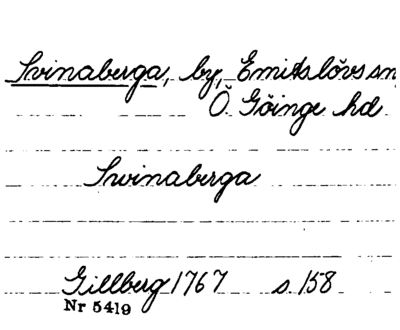 Svinaberga, by, Emitslövs sn,
Ö. Göinge hd
Swinaberga
Gillberg 1767 s. 158
Nr 5419